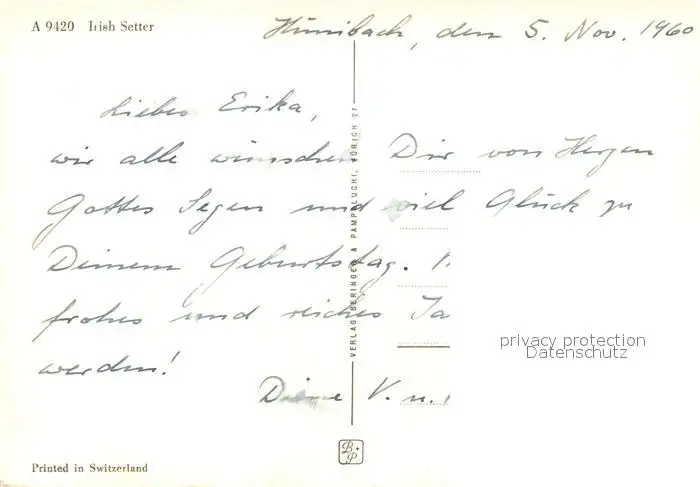 A 9420 Irish Setter
Hünibach, den 5. Nov. 1960
Liebes Erika,
wir alle wünschen Dir von Herzen
Gottes Segen und viel Glück zu
Deinem Geburtstag.
frohes und reiches Ja
werden!
Deine V. u.
VERLAG BERINGER & PAMPALUCHI, ZÜRICH 27
privacy protection
Datenschutz
B+P
Printed in Switzerland